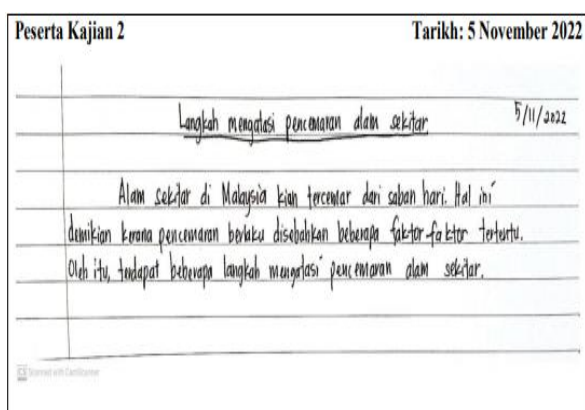 Peserta Kajian 2 Tarikh: 5 November 2022
Langkah mengatasi pencemaran alam sekitar 5/11/2022
Alam sekitar di Malaysia kian tercemar dari saban hari. Hal ini
demikian kerana pencemaran berlaku disebabkan beberapa faktor-faktor tertentu.
Oleh itu, terdapat beberapa langkah mengatasi pencemaran alam sekitar.
CS Scanned with CamScanner